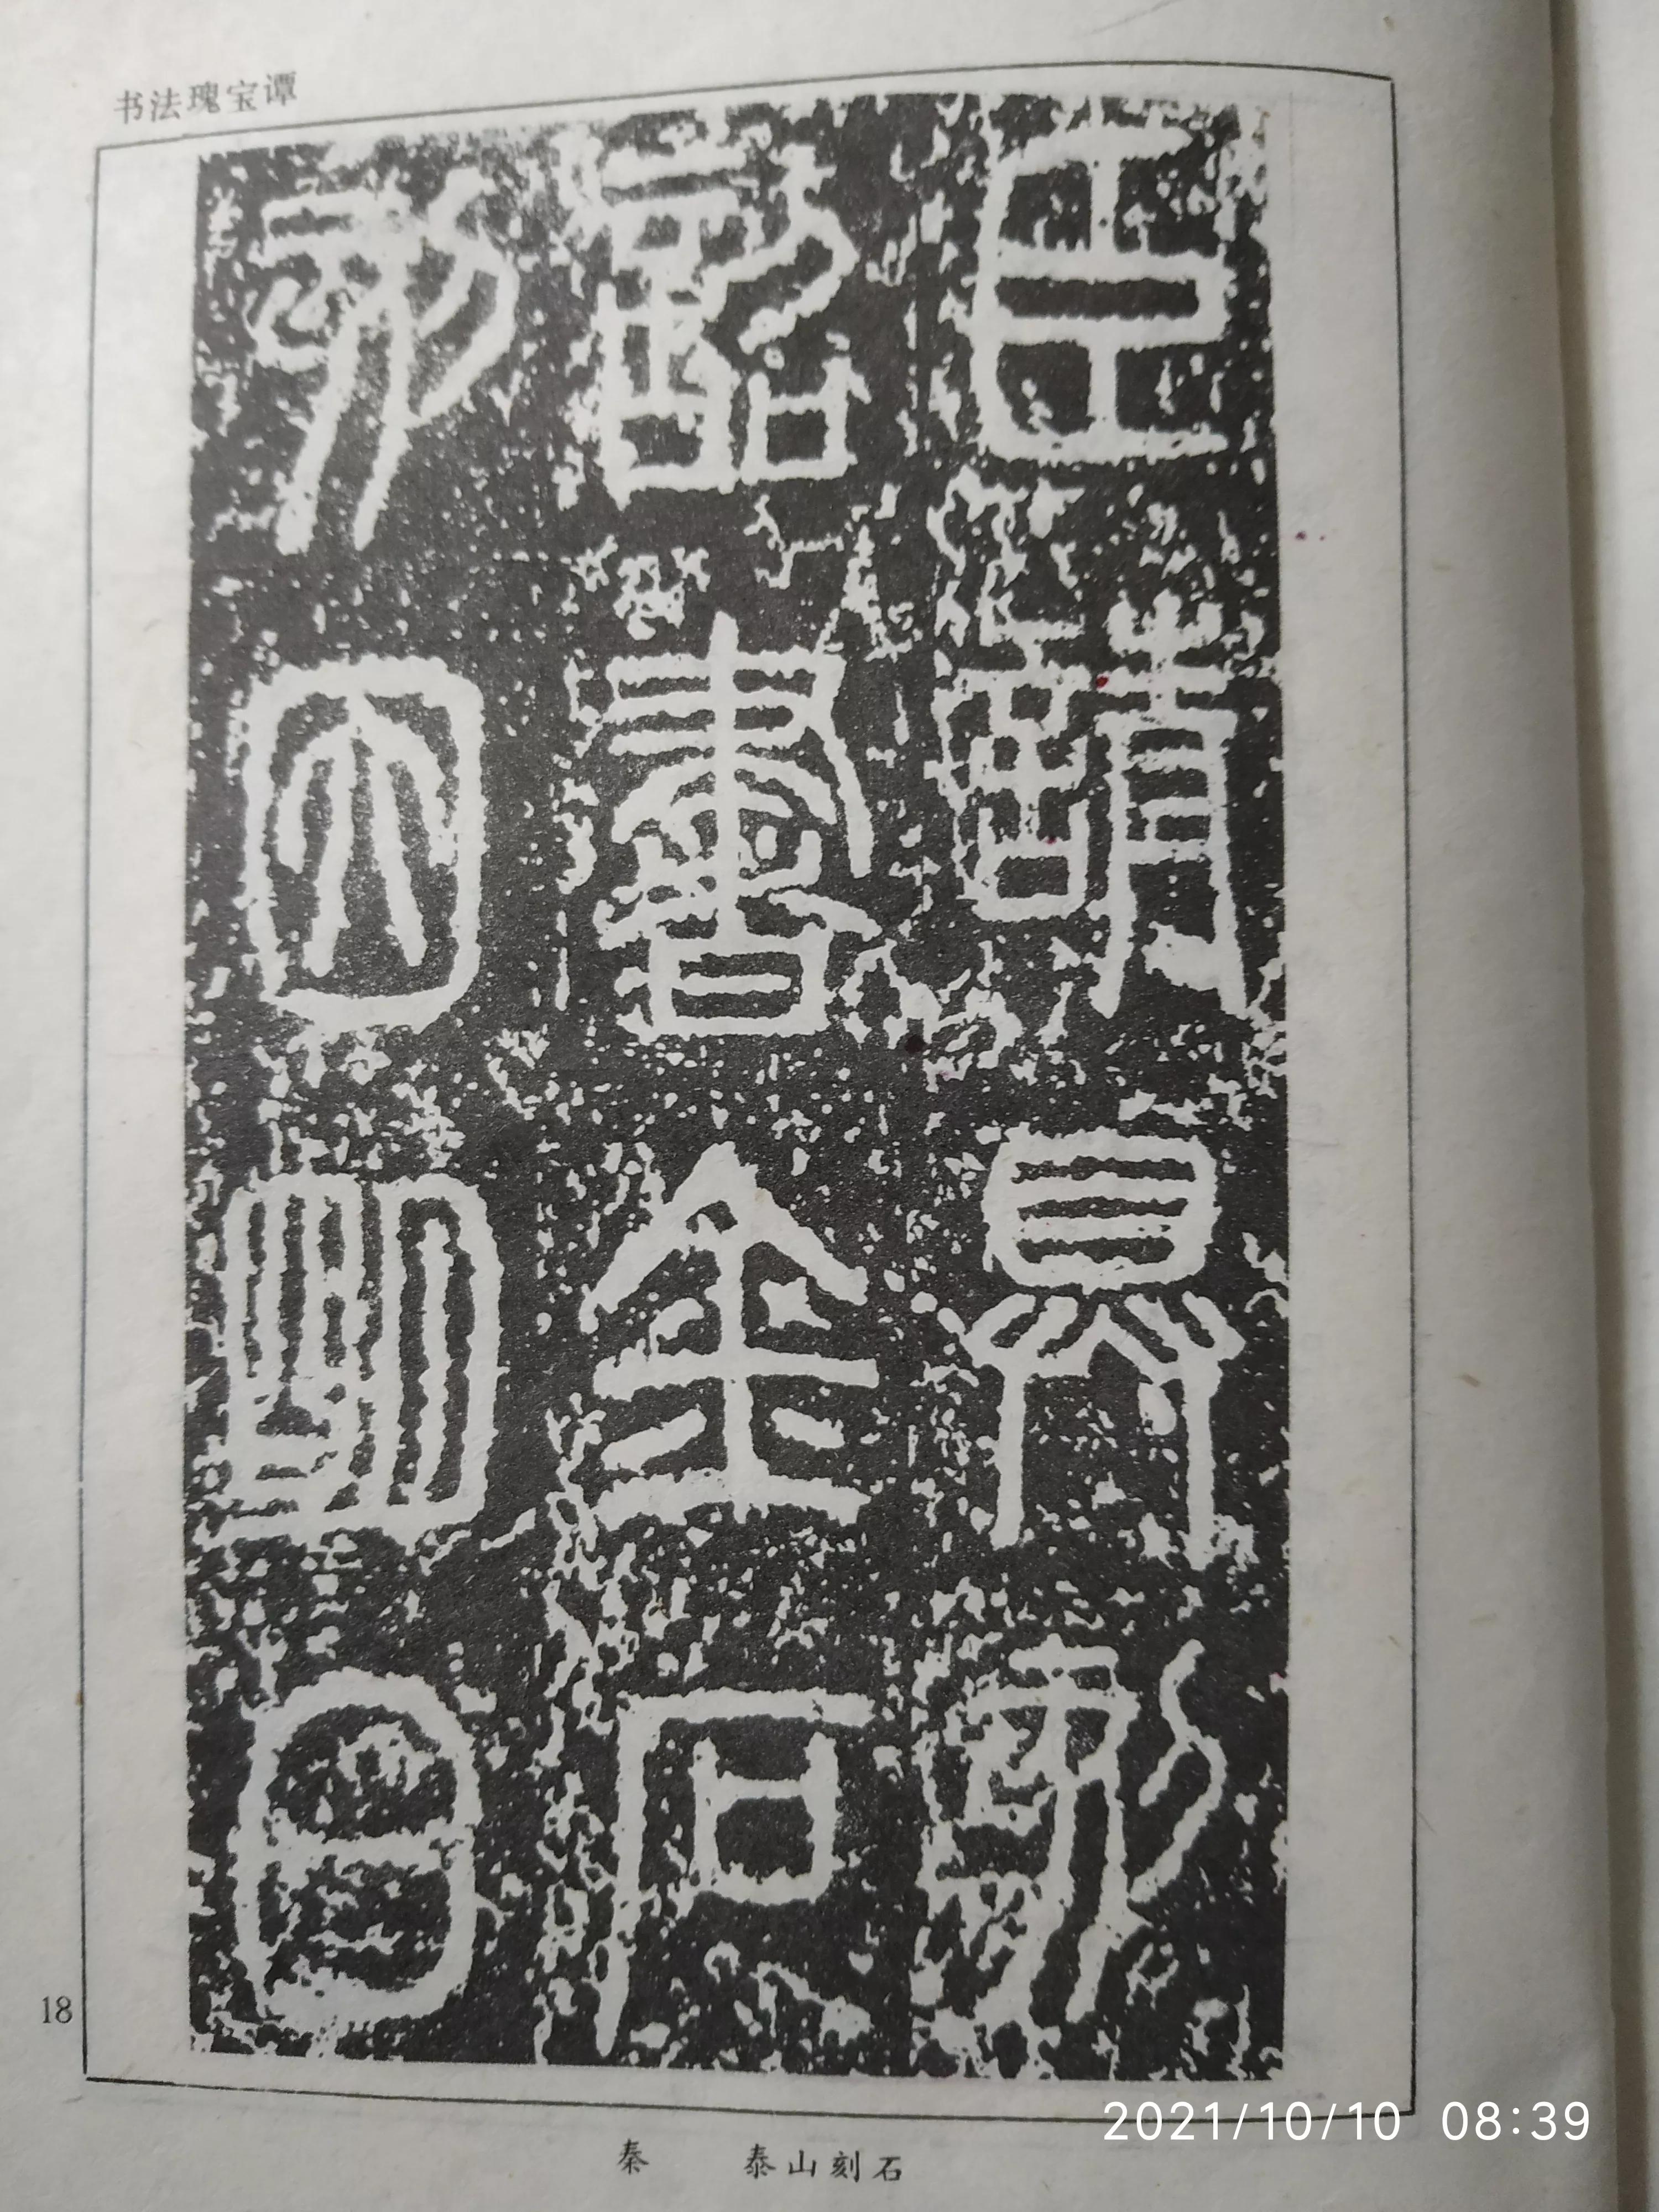 书法瑰宝谭
臣請具刻
詔書金石
刻因明白
18
秦 泰山刻石
2021/10/10 08:39